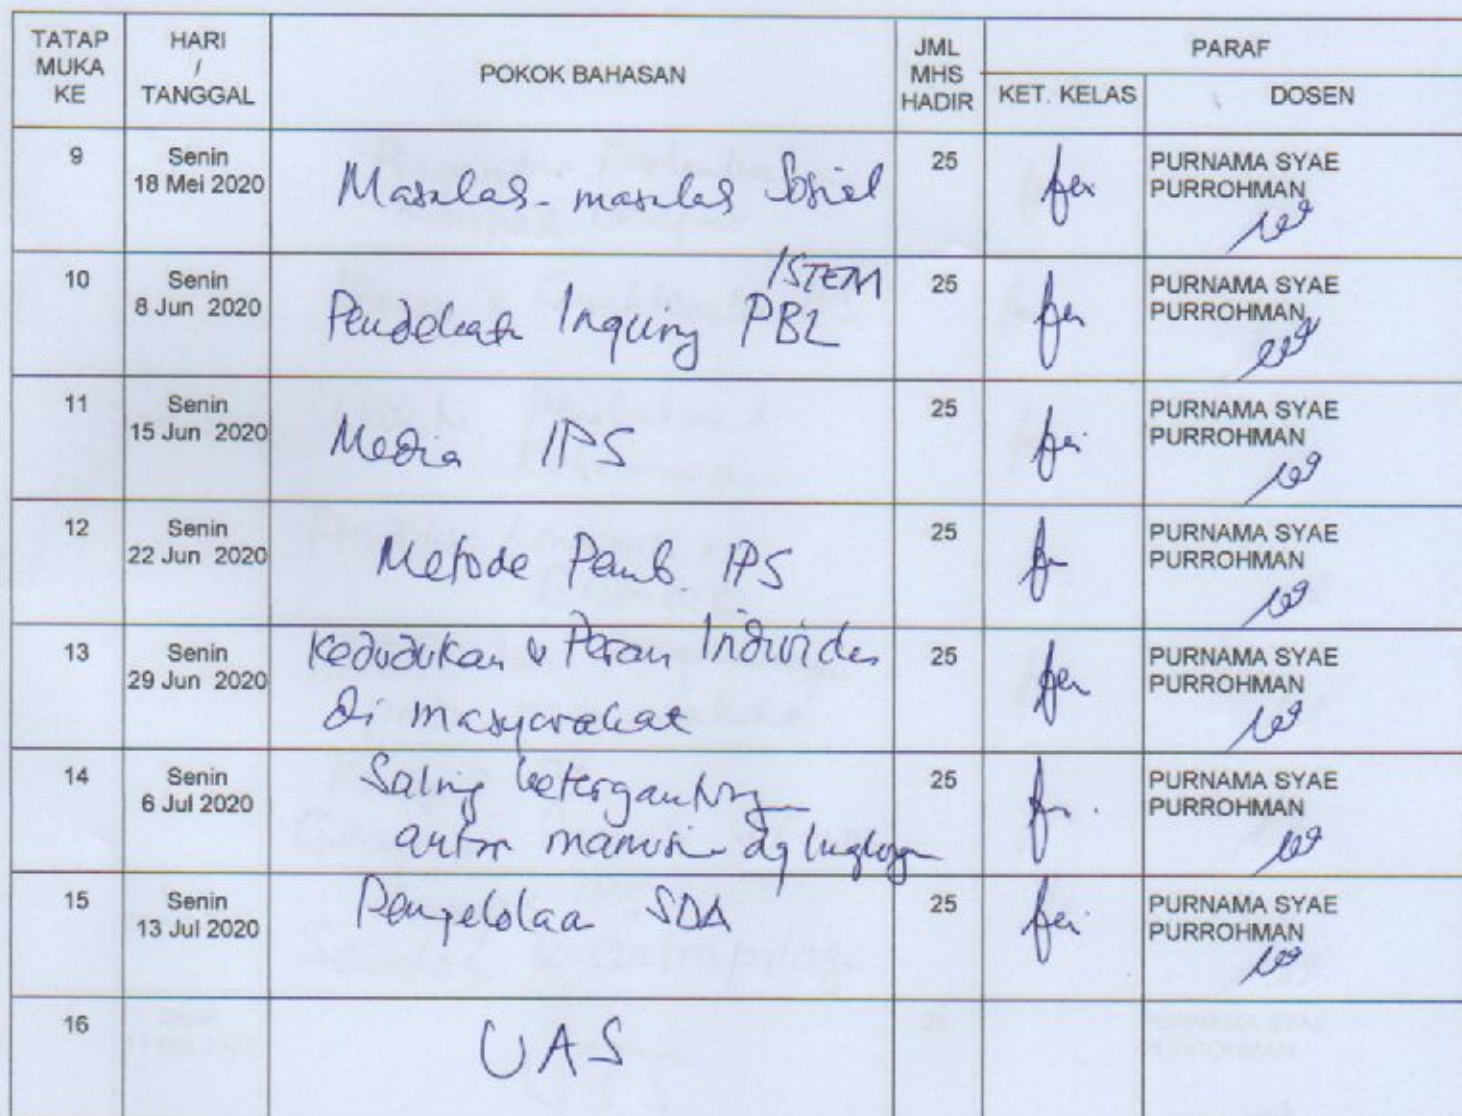 TATAP MUKA KE
HARI / TANGGAL
POKOK BAHASAN
JML MHS HADIR
PARAF
KET. KELAS
DOSEN
9
Senin
18 Mei 2020
Masalah-masalah Sosial
25
PURNAMA SYAE
PURROHMAN
10
Senin
8 Jun 2020
/STEM
Pendekat Inquiry PBL
25
PURNAMA SYAE
PURROHMAN
11
Senin
15 Jun 2020
Media IPS
25
PURNAMA SYAE
PURROHMAN
12
Senin
22 Jun 2020
Metode Pemb. IPS
25
PURNAMA SYAE
PURROHMAN
13
Senin
29 Jun 2020
Kedudukan & Peran Individu
di masyarakat
25
PURNAMA SYAE
PURROHMAN
14
Senin
6 Jul 2020
Saling ketergantung
antar manusia dg
25
PURNAMA SYAE
PURROHMAN
15
Senin
13 Jul 2020
Pengelolaa SDA
25
PURNAMA SYAE
PURROHMAN
16
UAS